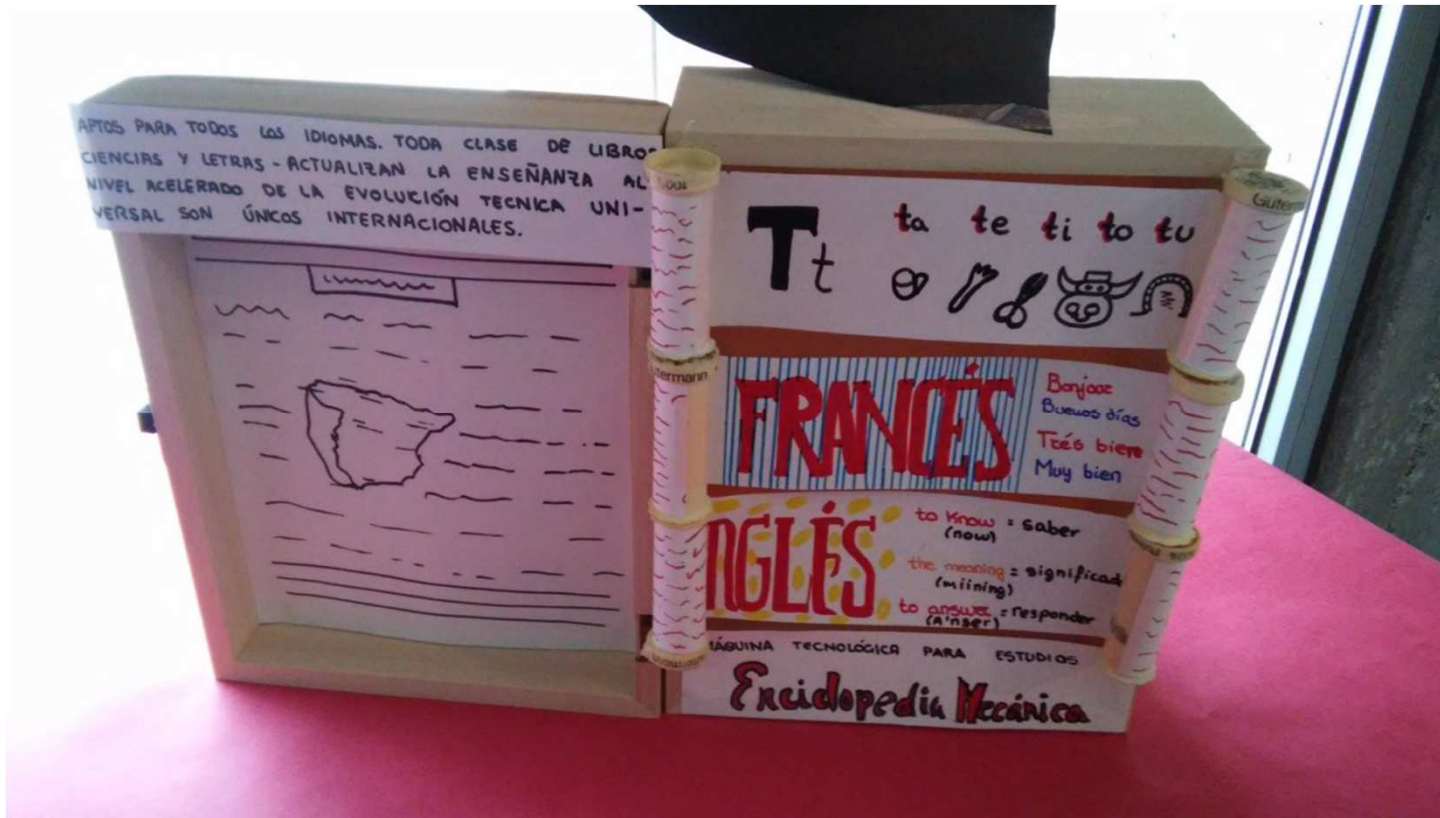 APTOS PARA TODOS LOS IDIOMAS. TODA CLASE DE LIBROS
CIENCIAS Y LETRAS - ACTUALIZAN LA ENSEÑANZA AL
NIVEL ACELERADO DE LA EVOLUCIÓN TECNICA UNI-
VERSAL SON ÚNICOS INTERNACIONALES.
T t
ta te ti to tu
Güterm
ütermann
FRANCÉS
Bonjour
Buenos días
Trés bien
Muy bien
NGLÉS
to Know = saber
(now)
the meaning = significad
(miining)
to answer = responder
(A'nser)
MÁQUINA TECNOLÓGICA PARA ESTUDIOS
Enciclopedia Mecánica